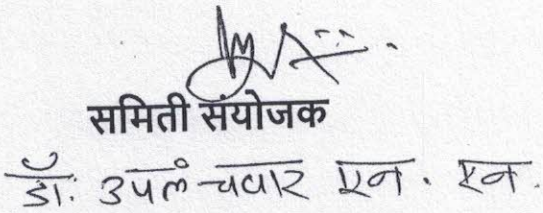 समिती संयोजक
डॉ. उपलंचवार एन. एन.